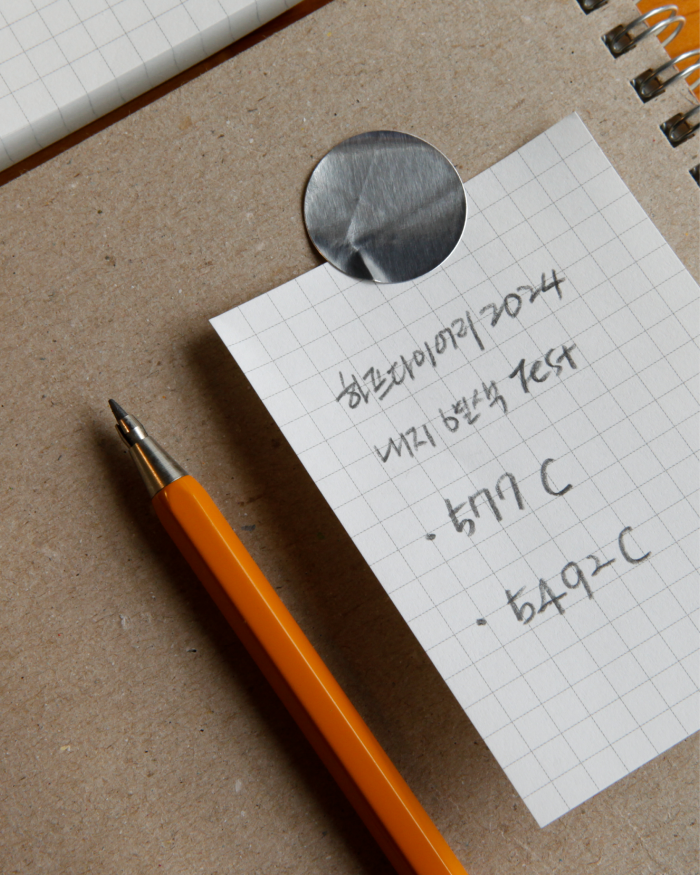 하프다이어리 2024
내지 별색 Test
· 577 C
· 5492 C